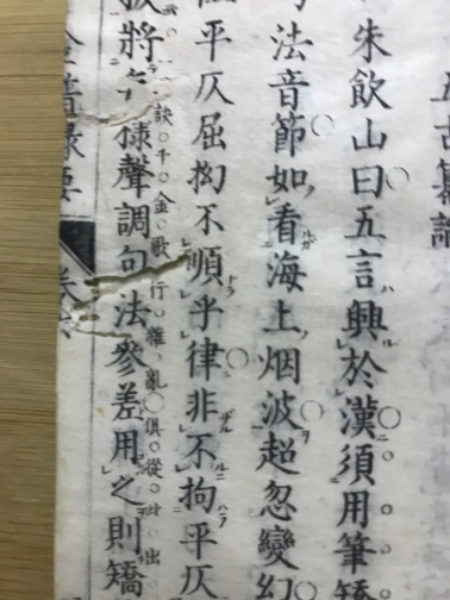 五古纂論
朱飲山曰五言興於漢須用筆矯
法音節如看海上烟波超忽變幻
平仄屈拗不順乎律非不拘平仄
將
聲調句法參差用之則矯
訣千金歌行雜亂俱從此出